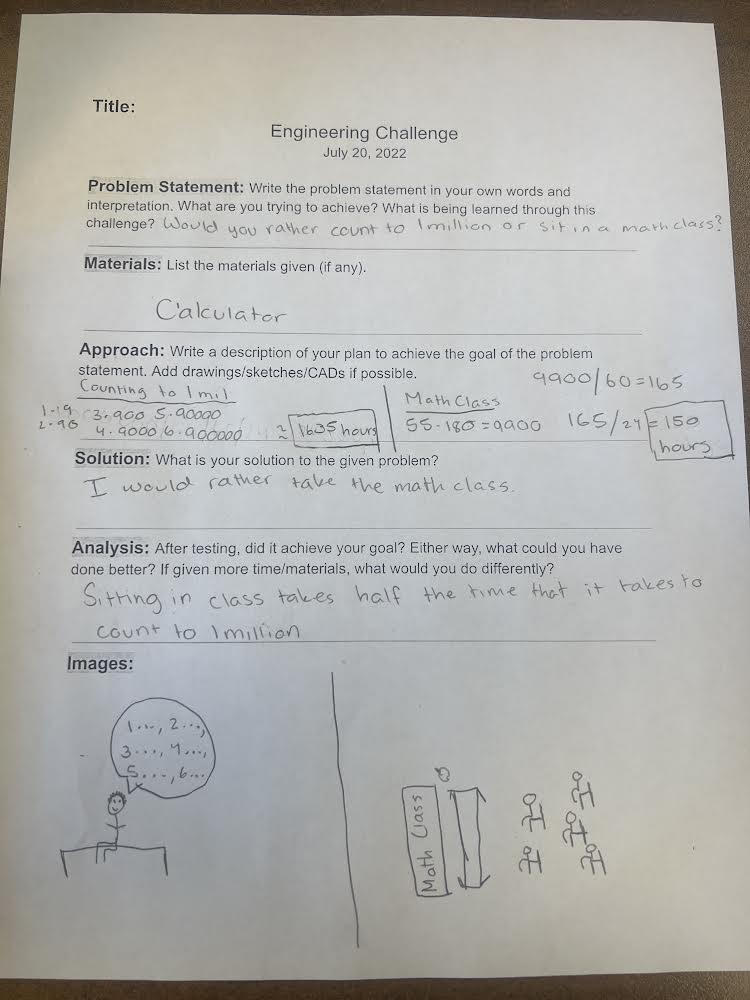 Title:
Engineering Challenge
July 20, 2022
Problem Statement: Write the problem statement in your own words and
interpretation. What are you trying to achieve? What is being learned through this
challenge? Would you rather count to 1million or sit in a math class?
Materials: List the materials given (if any).
Calculator
Approach: Write a description of your plan to achieve the goal of the problem
statement. Add drawings/sketches/CADs if possible.
Counting to 1 mil
1-19 3.900 5.90000
2.90 4.9000 6.900000 ≈ 1635 hours
Math Class
55-180=9900
9900/60=165
165/24=150
hours
Solution: What is your solution to the given problem?
I would rather take the math class.
Analysis: After testing, did it achieve your goal? Either way, what could you have
done better? If given more time/materials, what would you do differently?
Sitting in class takes half the time that it takes to
count to 1million
Images:
1..., 2...,
3...., 4...,
5...., 6...
Math Class